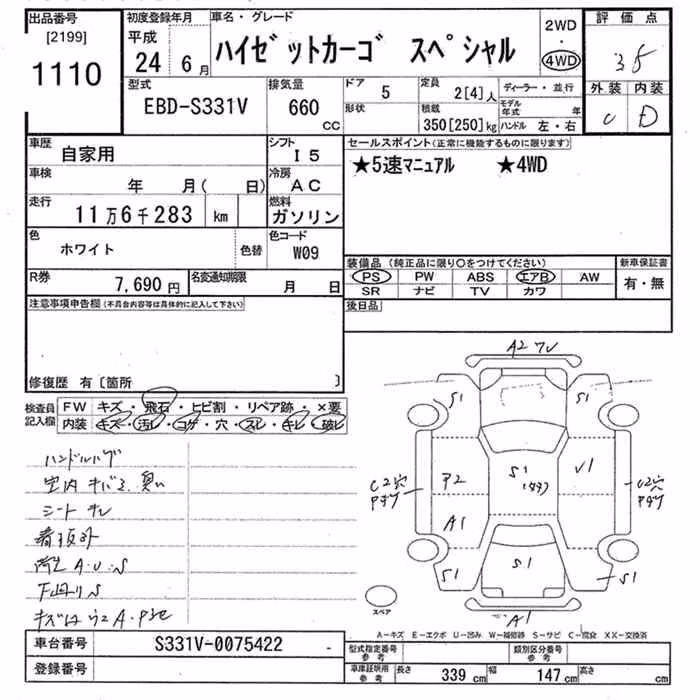 出品番号
[2199]
1110
初度登録年月
平成
24 6月
車名・グレード
ハイゼットカーゴ スペシャル
2WD
・
4WD
評価点
3.5
外装 内装
C D
型式
EBD-S331V
排気量
660
CC
ドア
5
形状
定員
2[4]人
積載
350[250]kg
ディーラー・並行
モデル年式 年
ハンドル 左・右
車歴
自家用
シフト
I5
車検
年 月( 日)
冷房
AC
走行
11万6千283 km
燃料
ガソリン
色
ホワイト
色替
色コード
W09
R券
7,690円
名変通知期限
月 日
注意事項申告欄(不具合内容等は具体的に記入して下さい)
修復歴 有〔箇所 〕
セールスポイント(正常に機能するものに限ります)
★5速マニュアル ★4WD
装備品(純正品に限り○をつけてください)
PS PW ABS エアB AW
SR ナビ TV カワ
新車保証書
有・無
後日品
検査員記入欄
FW キズ・飛石・ヒビ割・リペア跡・×要
内装 キズ・汚レ・コゲ・穴・スレ・キレ・破レ
ハンドルハゲ
室内 キバミ、臭い
シート キレ
下廻りS
A2 ワレ
S1
S1
C2穴
P2
S1
U1
C2穴
A1
S1
S1
S1
A1
スペア
A-キズ E-エクボ U-凹み W-補修跡 S-サビ C-腐食 XX-交換済
車台番号
S331V-0075422
登録番号
型式指定番号
参考
類別区分番号
参考
車庫証明用
参考
長さ
339 cm
幅
147 cm
高さ
cm